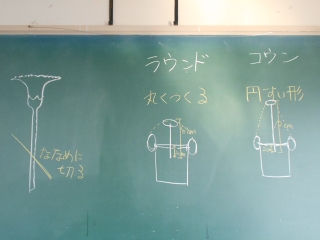 ラウンド
コウン
丸くつくる
円すい形
ななめに
切る